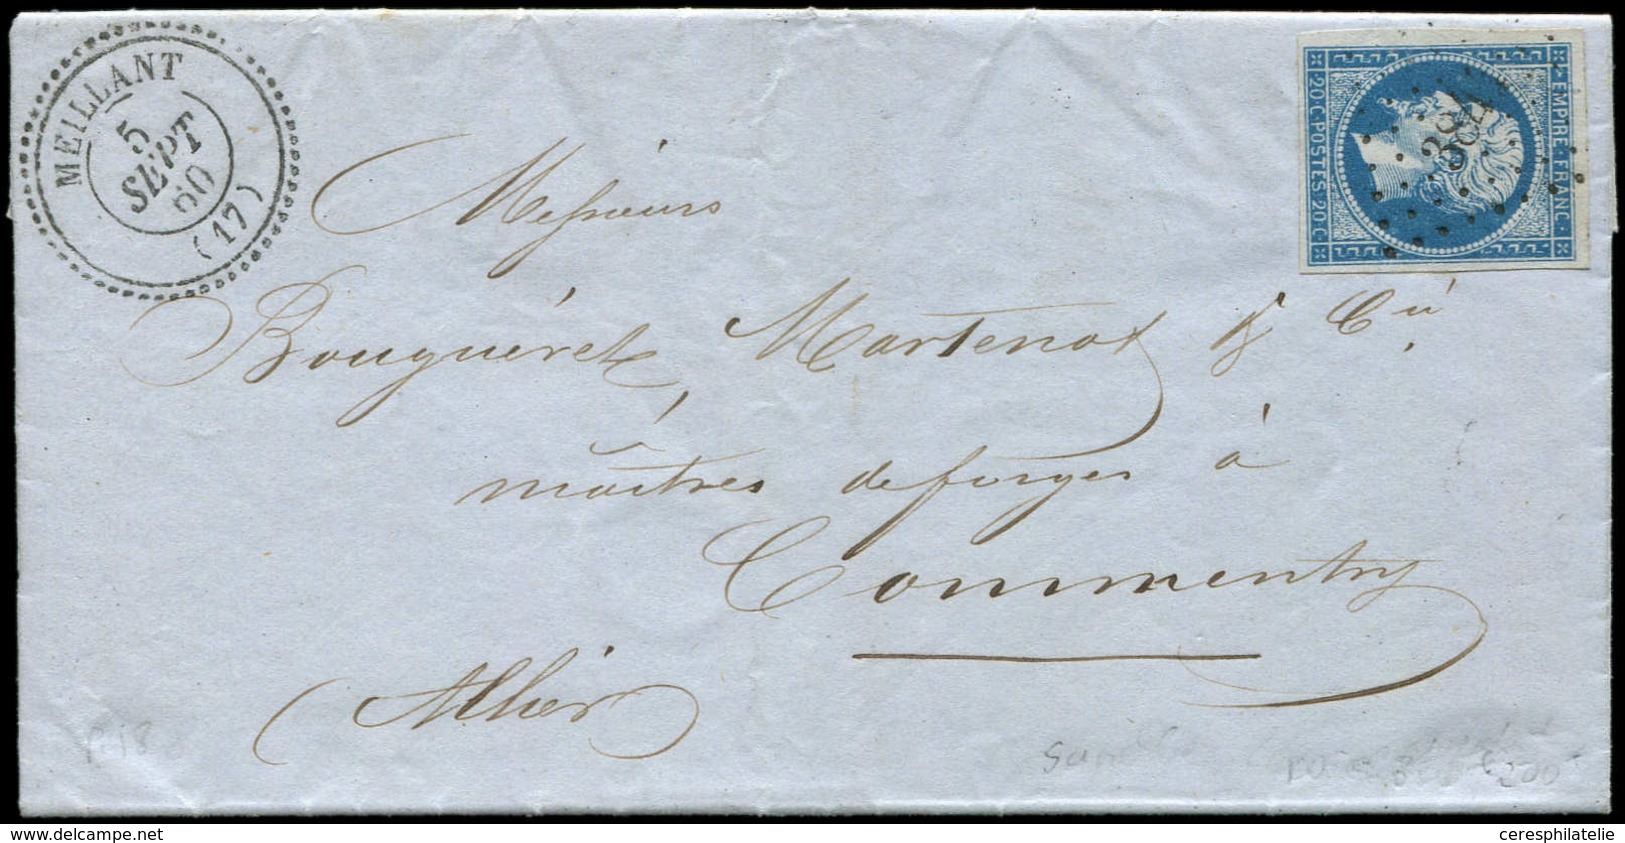 MEILLANT
5
SEPT
60
(17)
EMPIRE·FRANC·
20·C·POSTES·20·C·
Messieurs
Bouguéret, Martenot & Cie
maîtres de forges à
Commentry
(Allier)
P.18
200
www.delcampe.net
ceresphilatelie